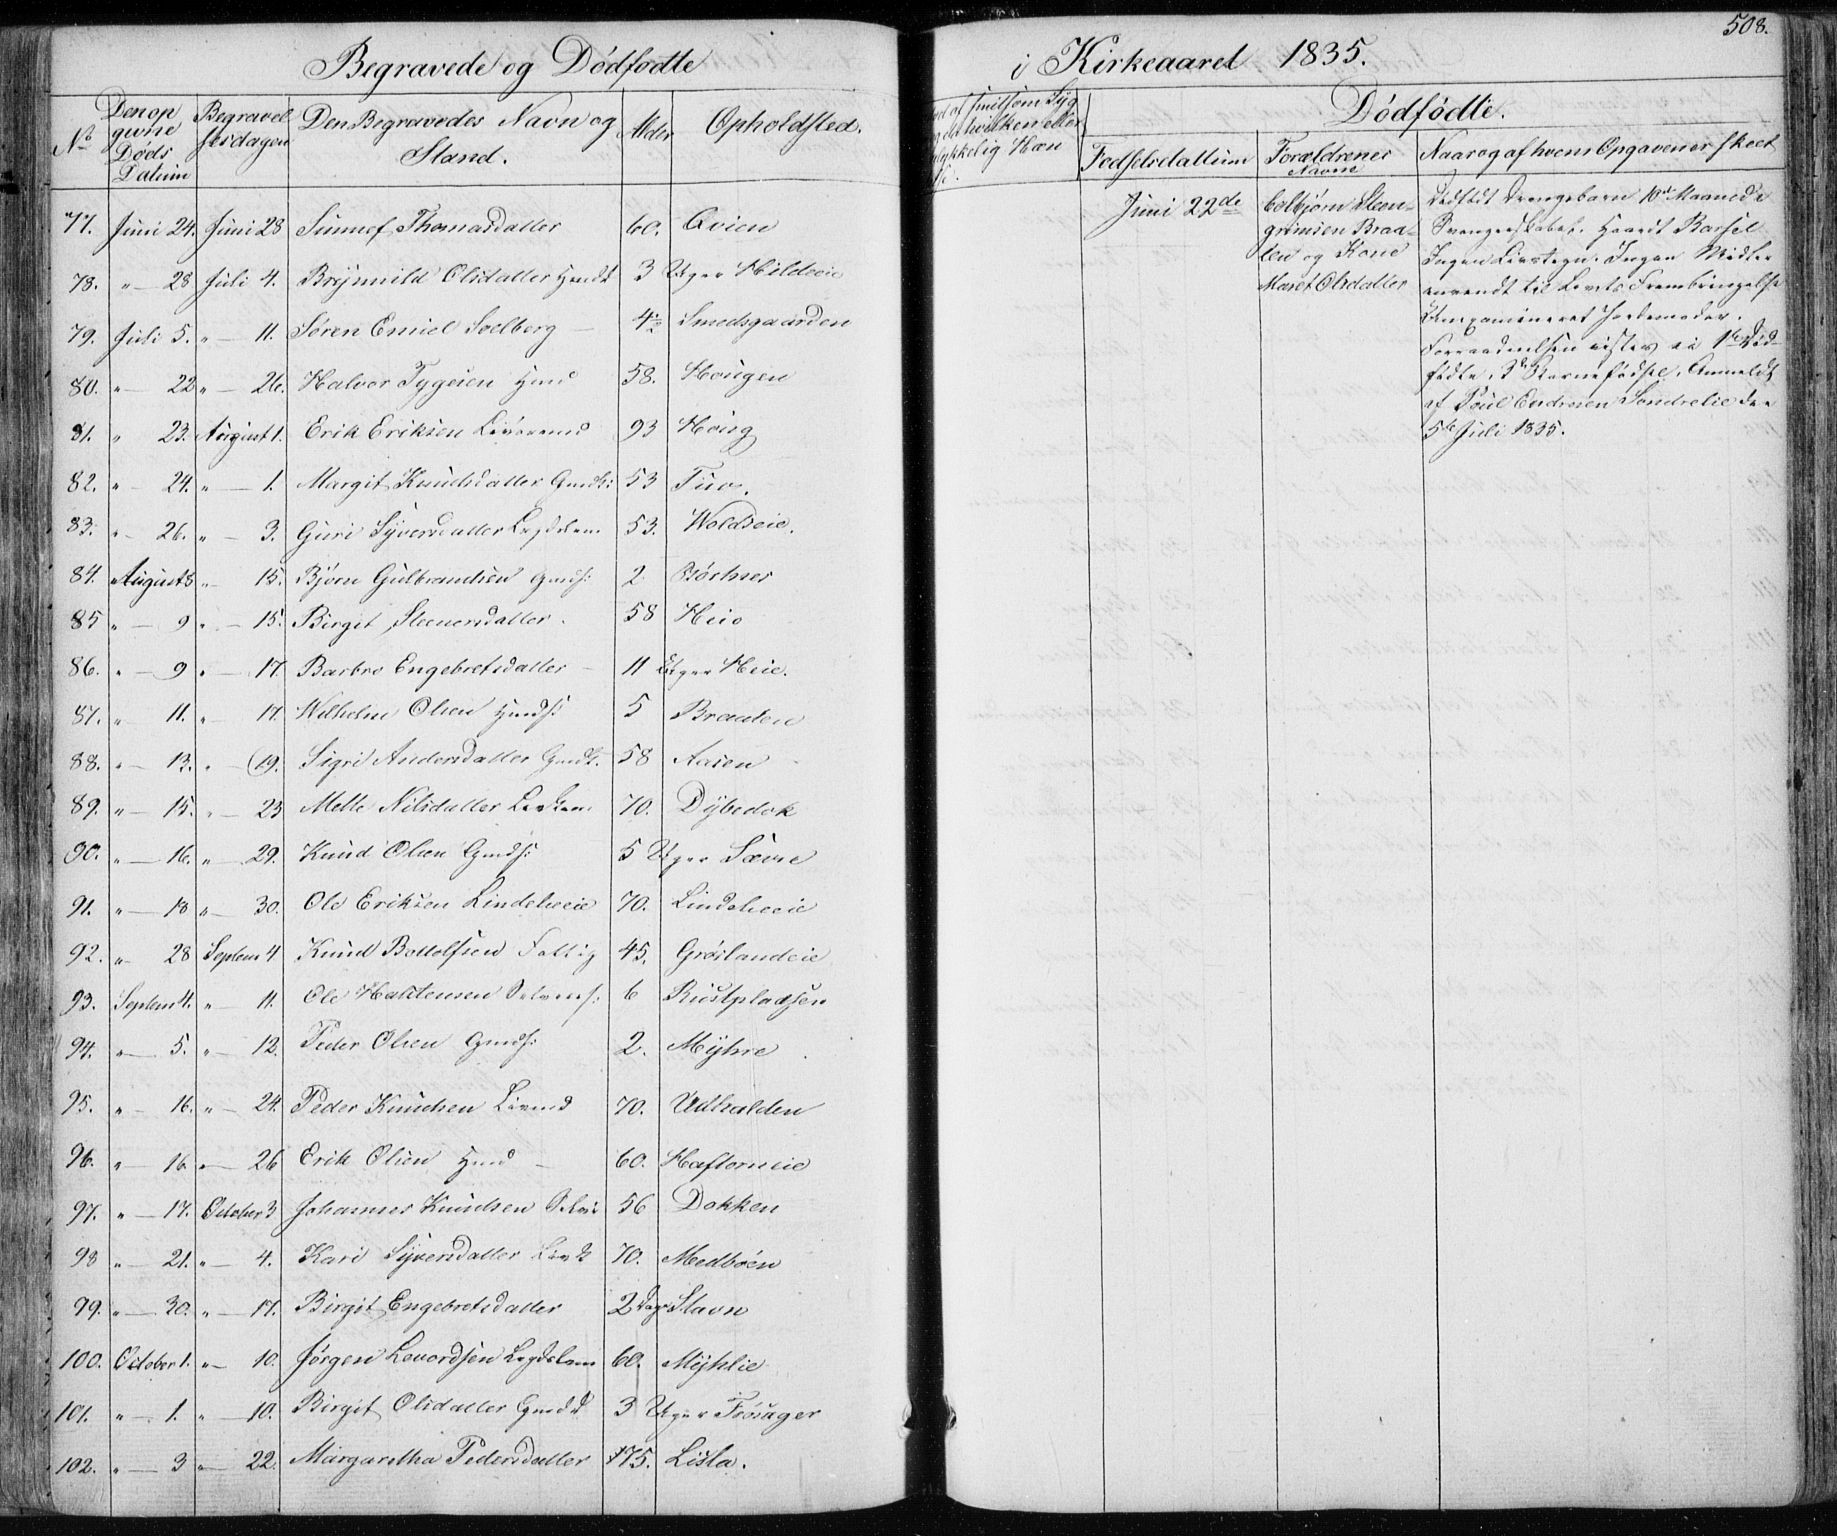 508.
Begravede og Dödfödte i Kirkeaaret 1835.
No Den op givne Döds Datum Begravel sesdagen Den Begravedes Navn og Stand. Alder Opholdsted.
77. Juni 24. Juni 28 Sunnef Thomasdatter 60. Qvien
78. " 28 Juli 4. Brynnild Olsdatter 3 Uger Hildeeie
79. Juli 5. " 11. Sören Emiel Soelberg 4½ Smedsgaarden
80. " 22 " 26. Halvor Tygesen Hmd 58. Hougen
81. " 23. August 1. Erik Eriksen 93 Houg
82. " 24. " 1. Margit Knudsdatter 53 Tuv.
83. " 26. " 3. Guri Syversdatter Legdslem 53. Woldseie.
84. August 8 " 15. Björn Gulbrandsen Gmds: 2 Börtnes
85 " 9 " 15. Birgit Steenersdatter. 58 Heie
86. " 9 " 17. Barbro Engebretsdatter 11 Uger Heie.
87. " 11. " 17. Wilhelm Olsen Hmds: 5 Braaten
88. " 13. " 19. Sigri Andersdatter 58 Aasen
89. " 15. " 23 Mette Nilsdatter 70. Dybedok
90. " 16. " 29. Knud Olsen Gmds: 5 Uger Sævre
91. " 18 " 30. Ole Eriksen Lindeleeie 70. Lindeleeie
92. " 28 Septem 4 Knud Bottolfsen Fattig 45. Gröslandeie
93. Septem 4. " 11. Ole Halstensen 6 Rustpladsen
94. " 5. " 12. Peder Olsen Gmds: 2. Myhre
95. " 16. " 24. Peder Knudsen 70. Udhalden
96. " 16 " 26 Erik Olsen Hmd 60. Haftorneie
97. " 17. October 3 Johannes Knudsen 56 Dokken
98 " 21. " 4. Kari Syversdatter 70. Medböen
99. " 30. " 17. Birgit Engebretsdatter 2 Dage Stavn
100. October 1. " 10. Jörgen Levordsen Legdslem 60. Myhlie
101. " 1. " 10. Birgit Olsdatter 3 Uger Frösager
102. " 3 " 22. Margaretha Pedersdatter 75. Lisla.
Dödfödte.
Födselsdattum Forældrenes Navne Naar og af hvem Opgaven er skeet
Juni 22de
Colbjörn Steen-
grimsen Braa-
ten og Kone
Maret Olsdatter
Dödfödt Drengebarn 10de Maaned i
Svangerskabet. Haardt Barsel
Ingen Livstegn. Ingen Midler
anvendt til Livets Frembringelse
Uexamineret Jordemoder.
Anmeldt
af Poul Endresen Sondrelie den
5te Juli 1835.